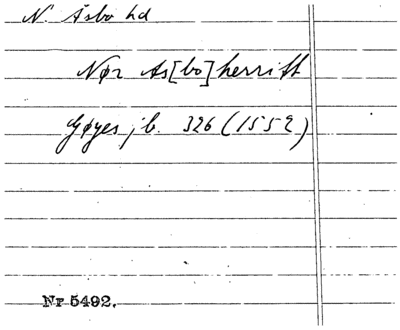 N. Åsbo hd
Nør As[bo]herrift
Gøyes jb. 326 (1552)
Nr 5492.